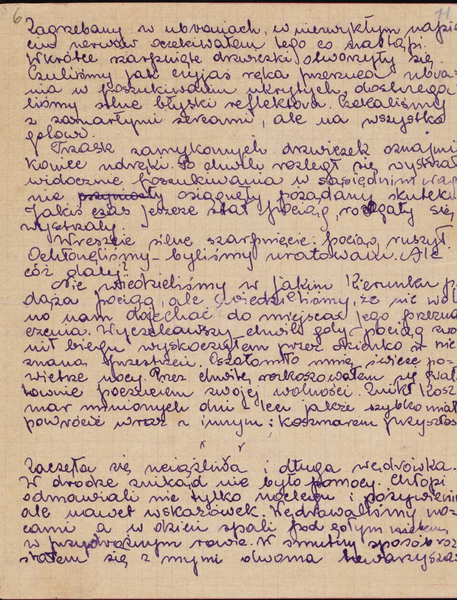 6 71
Zagrzebany w ubraniach, w niezwykłym napię-
ciu nerwów oczekiwałem tego co nastąpi.
Wkrótce szarpnięte drzwiczki otworzyły się.
Czuliśmy jak czyjaś ręka przerzuca ubra-
nia w poszukiwaniu ukrytych, dostrzega-
liśmy silne błyski reflektora. Czekaliśmy
z zamarłymi sercami, ale na wszystko
gotowi.
Trzask zamykanych drzwiczek oznajmił
koniec udręki. Po chwili rozległ się wystrzał
widocznie poszukiwania w sąsiednim wago-
nie przyniosły osiągnęły pożądany skutek.
Jakiś czas jeszcze stał pociąg, rozległy się
wystrzały.
Wreszcie silne szarpnięcie: pociąg ruszył.
Odetchnęliśmy - byliśmy uratowani. Ale
cóż dalej?
Nie wiedzieliśmy w jakim kierunku po-
dąża pociąg, ale wiedzieliśmy, że nie wol-
no nam dojechać do miejsca jego przezna-
czenia. Wyczekawszy chwili gdy pociąg zwol-
nił biegu wyskoczyłem przez okienko w nie-
znaną przestrzeń. Oszołomiło mnie świeże po-
wietrze nocy. Przez chwilę rozkoszowałem się gwał-
townie poczuciem swojej wolności. Znikł kosz-
mar minionych dni lecz jakże szybko miał
powrócić wraz z innym: koszmarem przyszłości
Zaczęła się uciążliwa i długa wędrówka.
W drodze znikąd nie było pomocy. Chłopi
odmawiali nie tylko noclegu i pożywienia
ale nawet wskazówek. Wędrowaliśmy no-
cami a w dzień spali pod gołym niebem,
w przydrożnym rowie. W smutny sposób roz-
stałem się z mymi dwoma towarzyszami